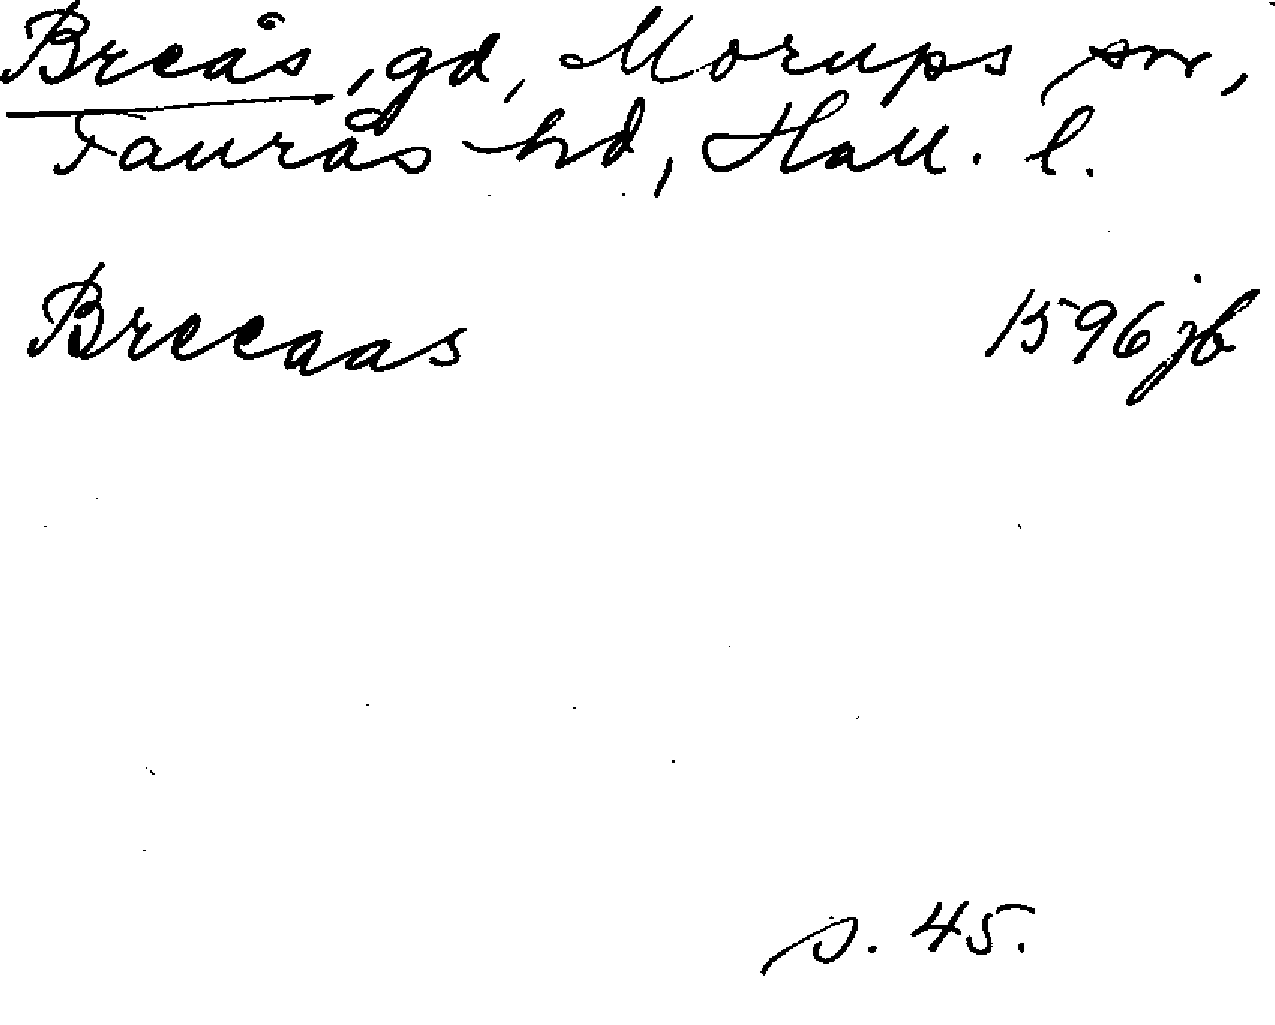 Breås, gd, Morups sn,
Faurås hd, Hall. l.
Breeaas 1596 jb
s. 45.